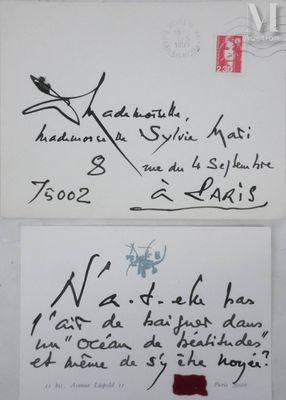 M
Auction
1991
2,30
Mademoiselle,
Mademoiselle Sylvie Mari
8 rue du 4 Septembre
75002 à PARIS
N'a-t-elle pas
l'air de baigner dans
un "océan de béatitudes"
et même de s'y être noyée?
11 bis, Avenue Léopold II
Paris